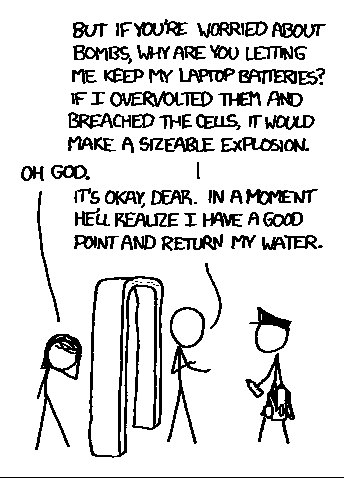 BUT IF YOU'RE WORRIED ABOUT
BOMBS, WHY ARE YOU LETTING
ME KEEP MY LAPTOP BATTERIES?
IF I OVERVOLTED THEM AND
BREACHED THE CELLS, IT WOULD
MAKE A SIZEABLE EXPLOSION.
OH GOD.
IT'S OKAY, DEAR. IN A MOMENT
HE'LL REALIZE I HAVE A GOOD
POINT AND RETURN MY WATER.